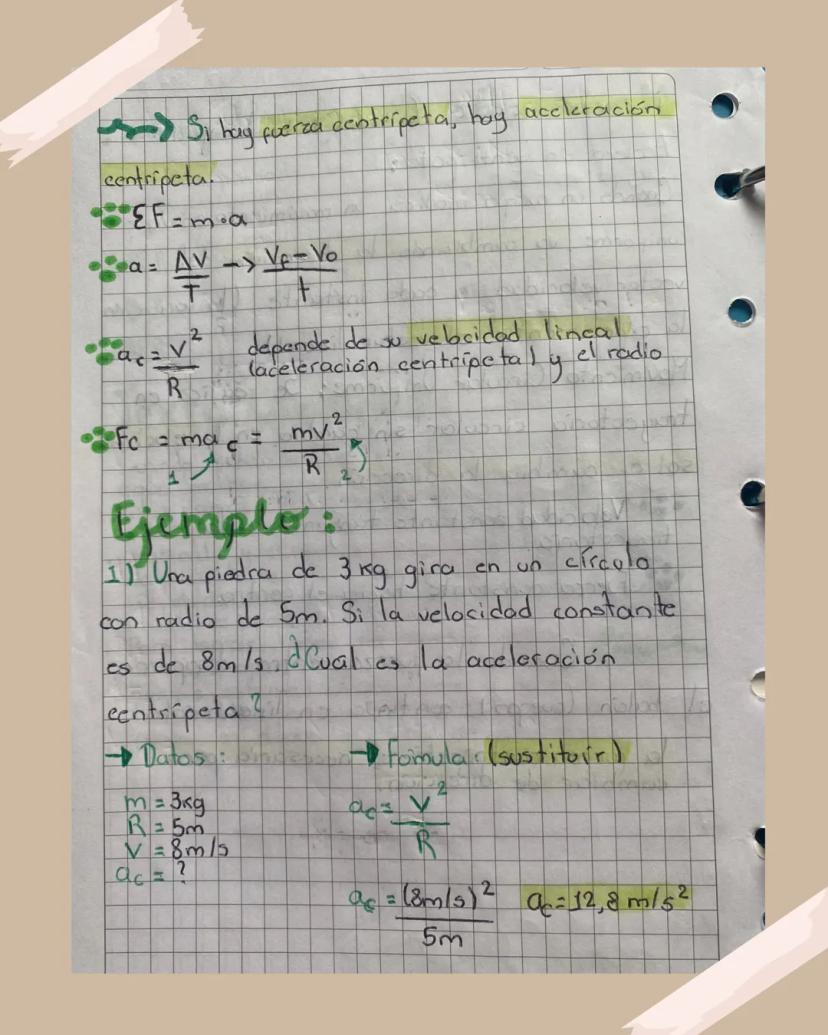 Si hay fuerza centrípeta, hay aceleración
centrípeta.
ΣF = m·a
a = ΔV/T → Vf - Vo/t
ac = V²/R depende de su velocidad lineal
(aceleración centrípeta) y el radio
Fc = mac = mv²/R
1 2
Ejemplo:
1) Una piedra de 3kg gira en un círculo
con radio de 5m. Si la velocidad constante
es de 8m/s. ¿Cual es la aceleración
centrípeta?
→ Datos: → Fómula: (sustituir)
m = 3kg
R = 5m
V = 8m/s
ac = ?
ac = V²/R
ac = (8m/s)²/5m ac = 12,8 m/s²